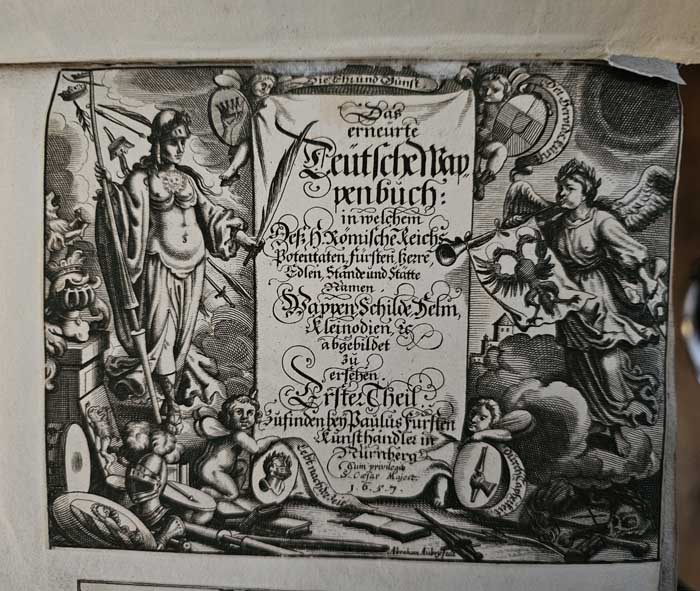 Die Ehr und Kunst
Das
erneürte
Teütsche Wap-
penbüch:
in welchem
Deß H. Römische Reichs
Potentaten, fürsten, herrē,
Edlen, Stände und Stätte
Namen
Wappen, Schilde, Helm,
Kleinodien &c
abgebildet
zü
ersehen
Erster Theil
Züfinden bey Paulus fürsten
Künsthandler in
Nürnberg
Cum privilegio
S. Cæsar Majest.
1 6 5 7.
Abraham Aubry fecit